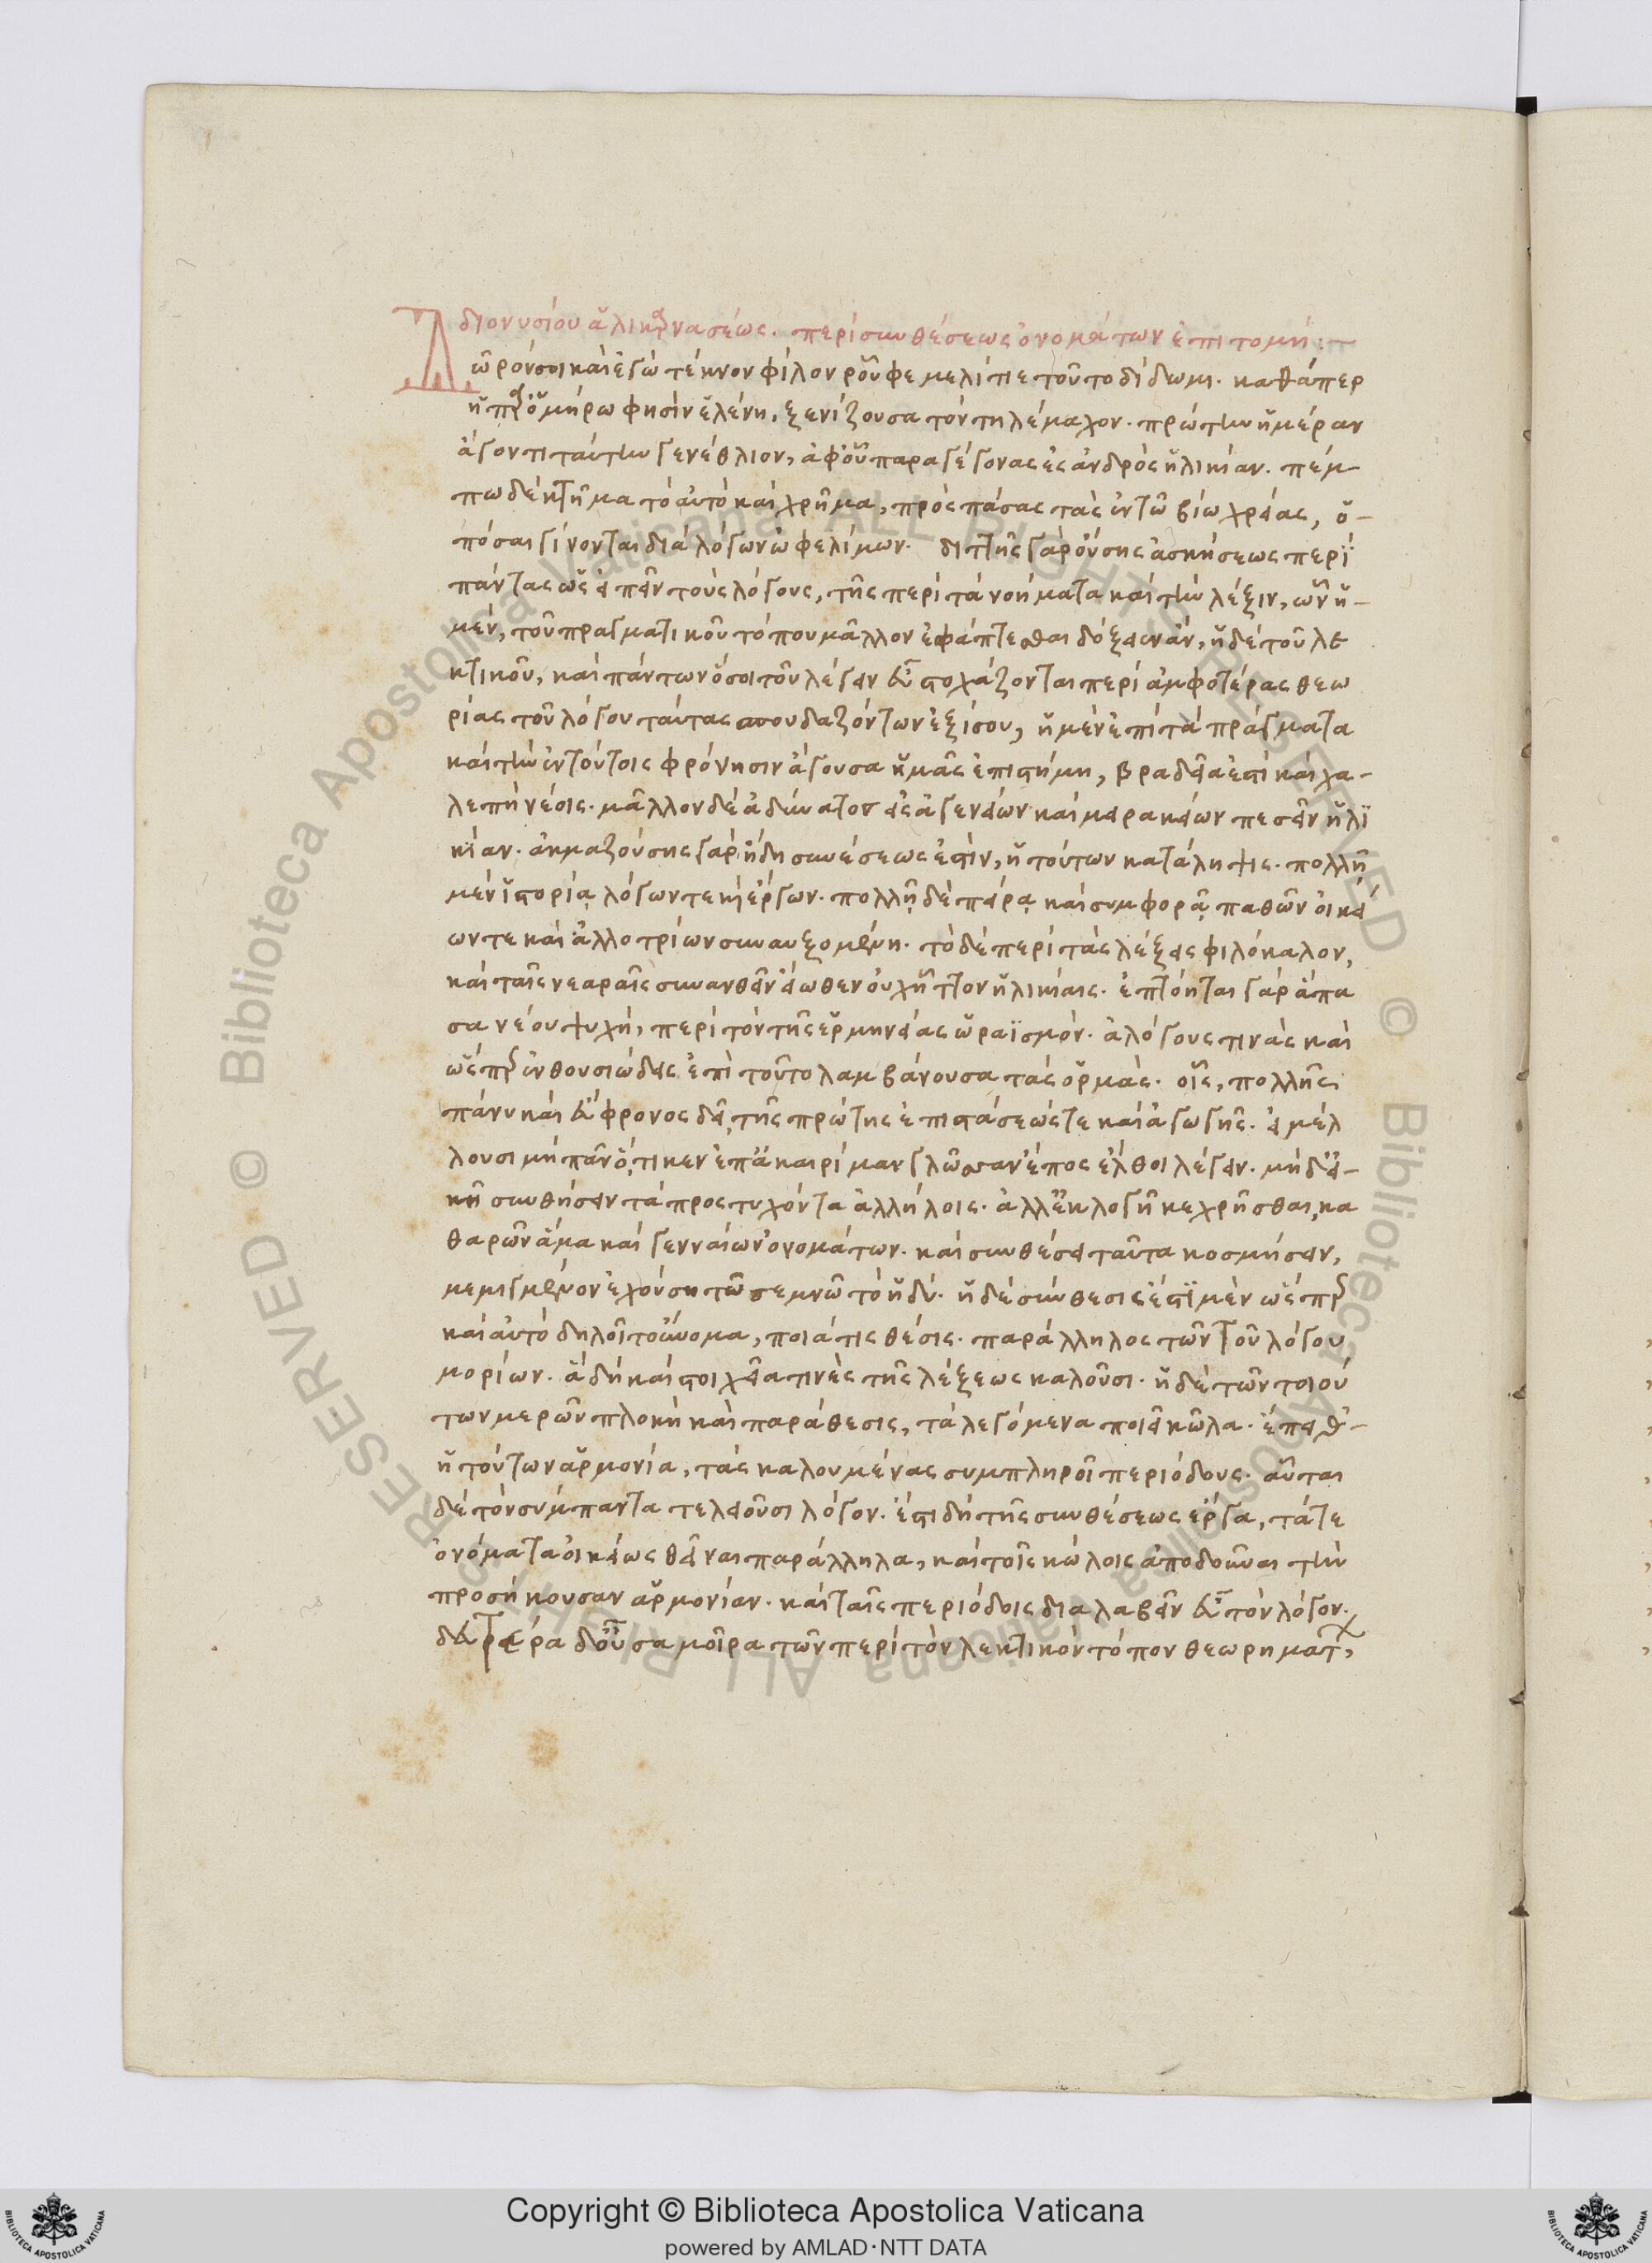 διονυσίου ἁλικαρνασέως. περὶ συνθέσεως ὀνομάτων ἐπιτομή:
Δῶρόν σοι καὶ ἐγὼ τέκνον φίλον ῥοῦφε μελίτιε τοῦτο δίδωμι. καθάπερ
ἡ παρ ὁμήρω φησὶν ἑλένη, ξενίζουσα τὸν τηλέμαχον. πρώτην ἡμέραν
ἄγοντι ταύτην γενέθλιον, ἀφ οὗ παραγέγονας ἐς ἀνδρὸς ἡλικίαν. πέμ
πω δὲ κτῆμα τὸ αὐτὸ καὶ χρῆμα, πρὸς πάσας τὰς ἐν τῶ βίω χρείας, ὁ-
πόσαι γίνονται διὰ λόγων ὠφελίμων. διττῆς γὰρ οὔσης ἀσκήσεως περὶ
πάντας ὡς εἰπεῖν τοὺς λόγους, τῆς περὶ τὰ νοήματα καὶ τὴν λέξιν, ὧν ἡ-
μὲν, τοῦ πραγματικοῦ τόπου μᾶλλον ἐφάπτεσθαι δόξειεν ἂν, ἡ δὲ τοῦ λε
κτικοῦ, καὶ πάντων ὅσοι τοῦ λέγειν εὖ στοχάζονται περὶ ἀμφοτέρας θεω
ρίας τοῦ λόγου ταύτας σπουδαζόντων ἐξίσου, ἡ μὲν ἐπὶ τὰ πράγματα
καὶ τὴν ἐν τούτοις φρόνησιν ἄγουσα ἡμᾶς ἐπιστήμη, βραδεῖα ἐστὶ καὶ χα-
λεπὴ νέοις. μᾶλλον δὲ ἀδύνατος εἰς ἀγενείων καὶ μειρακείων πεσεῖν ἡλι
κίαν. ἀκμαζούσης γὰρ ἤδη συνέσεως ἐστὶν, ἡ τούτων κατάληψις. πολλῆ
μὲν ἱστορίᾳ λόγων τε καὶ ἔργων. πολλῇ δὲ πείρᾳ καὶ συμφορᾷ παθῶν οἰκεί
ων τε καὶ ἀλλοτρίων συναυξομένη. τὸ δὲ περὶ τὰς λέξεις φιλόκαλον,
καὶ ταῖς νεαραῖς συνανθεῖν εἴωθεν οὐχ ἧττον ἡλικίαις. ἐπτόηται γὰρ ἅπα
σα νέου ψυχὴ, περὶ τὸν τῆς ἑρμηνείας ὡραϊσμόν. ἀλόγους τινὰς καὶ
ὥσπερ ἐνθουσιώδεις ἐπὶ τοῦτο λαμβάνουσα τὰς ὁρμάς. οἷς, πολλῆς
πάνυ καὶ εὔφρονος δεῖ, τῆς πρώτης ἐπιστάσεώς τε καὶ ἀγωγῆς. εἰ μέλ
λουσι μὴ πᾶν ὅ,τι κεν ἐπ ἀκαιρίμαν γλῶσσαν ἔπος ἔλθοι λέγειν. μηδ εἰ-
κῆ συνθήσειν τὰ προστυχόντα ἀλλήλοις. ἀλλ ἐκλογῆ κεχρῆσθαι, κα
θαρῶν ἅμα καὶ γενναίων ὀνομάτων. καὶ συνθέσει ταῦτα κοσμήσειν,
μεμιγμένον ἐχούση τῶ σεμνῶ τὸ ἡδύ. ἡ δὲ σύνθεσις ἔστι μὲν ὥσπερ
καὶ αὐτὸ δηλοῖ τοὔνομα, ποιά τις θέσις. παράλληλος τῶν τοῦ λόγου
μορίων. ἃ δὴ καὶ στοιχεῖα τινὲς τῆς λέξεως καλοῦσι. ἡ δὲ τῶν τοιού
των μερῶν πλοκὴ καὶ παράθεσις, τὰ λεγόμενα ποιεῖ κῶλα. ἔπειθ-
ἡ τούτων ἁρμονία, τὰς καλουμένας συμπληροῖ περιόδους. αὗται
δὲ τὸν σύμπαντα τελειοῦσι λόγον. ἔστι δὴ τῆς συνθέσεως ἔργα, τά τε
ὀνόματα οἰκείως θεῖναι παράλληλα, καὶ τοῖς κώλοις ἀποδοῦναι τὴν
προσήκουσαν ἁρμονίαν. καὶ ταῖς περιόδοις διαλαβεῖν εὖ τὸν λόγον.
δευτέρα δ οὖσα μοῖρα τῶν περὶ τὸν λεκτικὸν τόπον θεωρημάτ
Copyright © Biblioteca Apostolica Vaticana
powered by AMLAD·NTT DATA